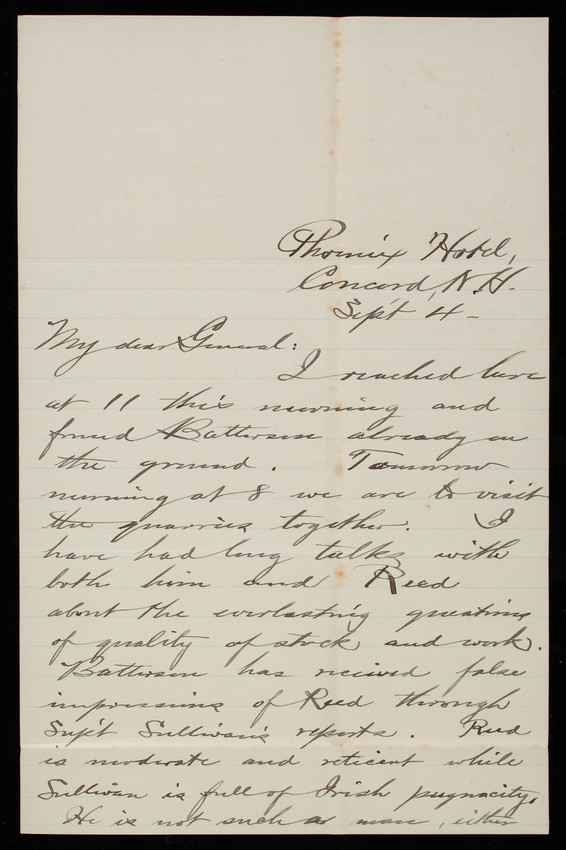 Phoenix Hotel,
Concord, N.H.
Sep't 4 -
My dear General:
I reached here
at 11 this morning and
found Batterson already on
the ground. Tomorrow
morning at 8 we are to visit
the quarries together. I
have had long talks with
both him and Reed
about the everlasting questions
of quality of stock and work.
Batterson has received false
impressions of Reed through
Sup't Sullivan's reports. Reed
is moderate and reticent while
Sullivan is full of Irish pugnacity.
He is not such a man, either